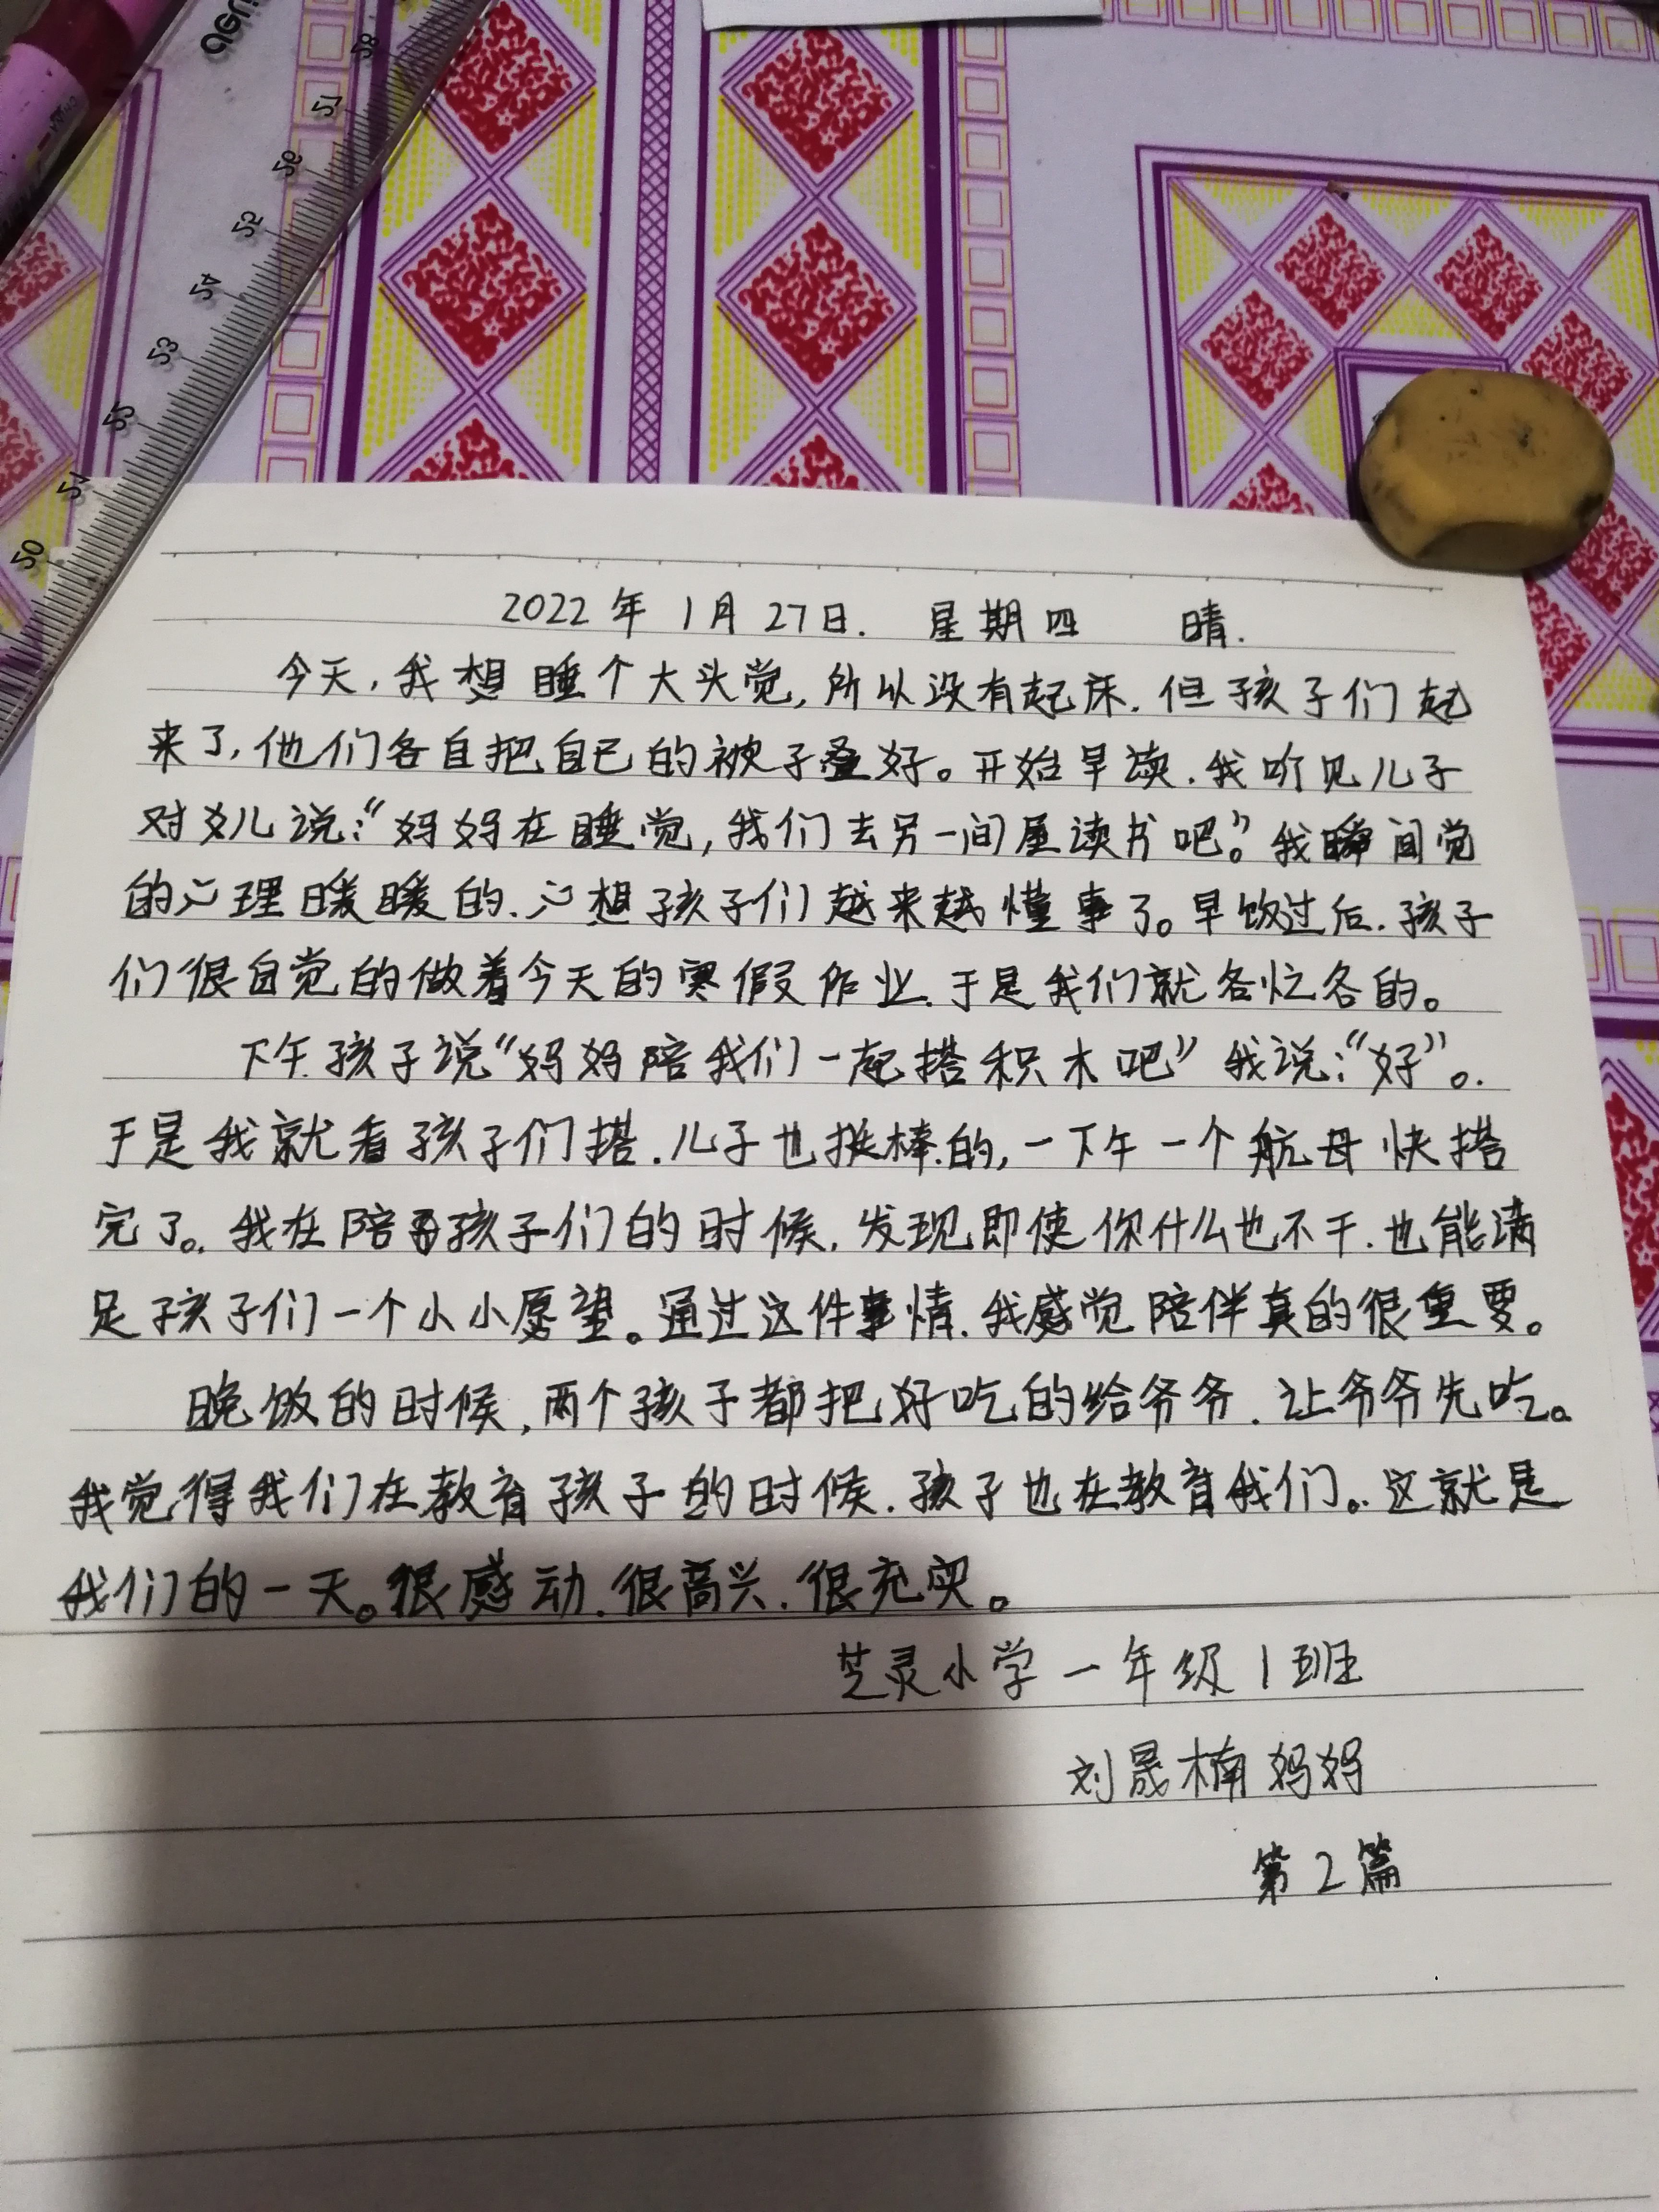 2022年1月27日. 星期四 晴.
今天,我想睡个大头觉,所以没有起床.但孩子们起
来了,他们各自把自己的被子叠好。开始早读.我听见儿子
对女儿说:“妈妈在睡觉,我们去另一间屋读书吧。”我瞬间觉
的心理暖暖的.心想孩子们越来越懂事了。早饭过后.孩子
们很自觉的做着今天的寒假作业.于是我们就各忙各的。
下午.孩子说“妈妈陪我们一起搭积木吧”我说:“好”。
于是我就看孩子们搭.儿子也挺棒的,一下午一个航母快搭
完了。我在陪孩子们的时候.发现即使你什么也不干.也能满
足孩子们一个小小愿望。通过这件事情.我感觉陪伴真的很重要。
晚饭的时候,两个孩子都把好吃的给爷爷.让爷爷先吃。
我觉得我们在教育孩子的时候.孩子也在教育我们。这就是
我们的一天。很感动.很高兴.很充实。
芝灵小学一年级1班
刘晟楠妈妈
第2篇
20
21
22
23
24
25
26
27
28